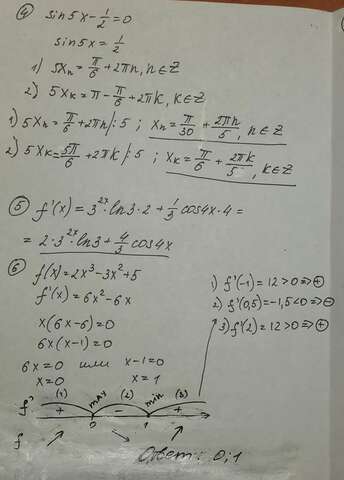 ④ sin5x - 1/2 = 0
sin5x = 1/2
1) 5xₙ = π/6 + 2πn, n∈Z
2) 5xₖ = π - π/6 + 2πk, k∈Z
1) 5xₙ = π/6 + 2πn |:5 ; xₙ = π/30 + 2πn/5, n∈Z
2) 5xₖ = 5π/6 + 2πk |:5 ; xₖ = π/6 + 2πk/5, k∈Z
⑤ f'(x) = 3²ˣ·ln3·2 + 1/3 cos4x·4 =
= 2·3²ˣ·ln3 + 4/3 cos4x
⑥ f(x) = 2x³ - 3x² + 5
f'(x) = 6x² - 6x
x(6x-6) = 0
6x(x-1) = 0
6x = 0 или x-1 = 0
x = 0 x = 1
1) f'(-1) = 12 > 0 ⇒ ⊕
2) f'(0,5) = -1,5 < 0 ⇒ ⊖
3) f'(2) = 12 > 0 ⇒ ⊕
(1) max (2) min (3)
f' + - +
0 1
f ↗ ↘ ↗
Ответ: 0; 1